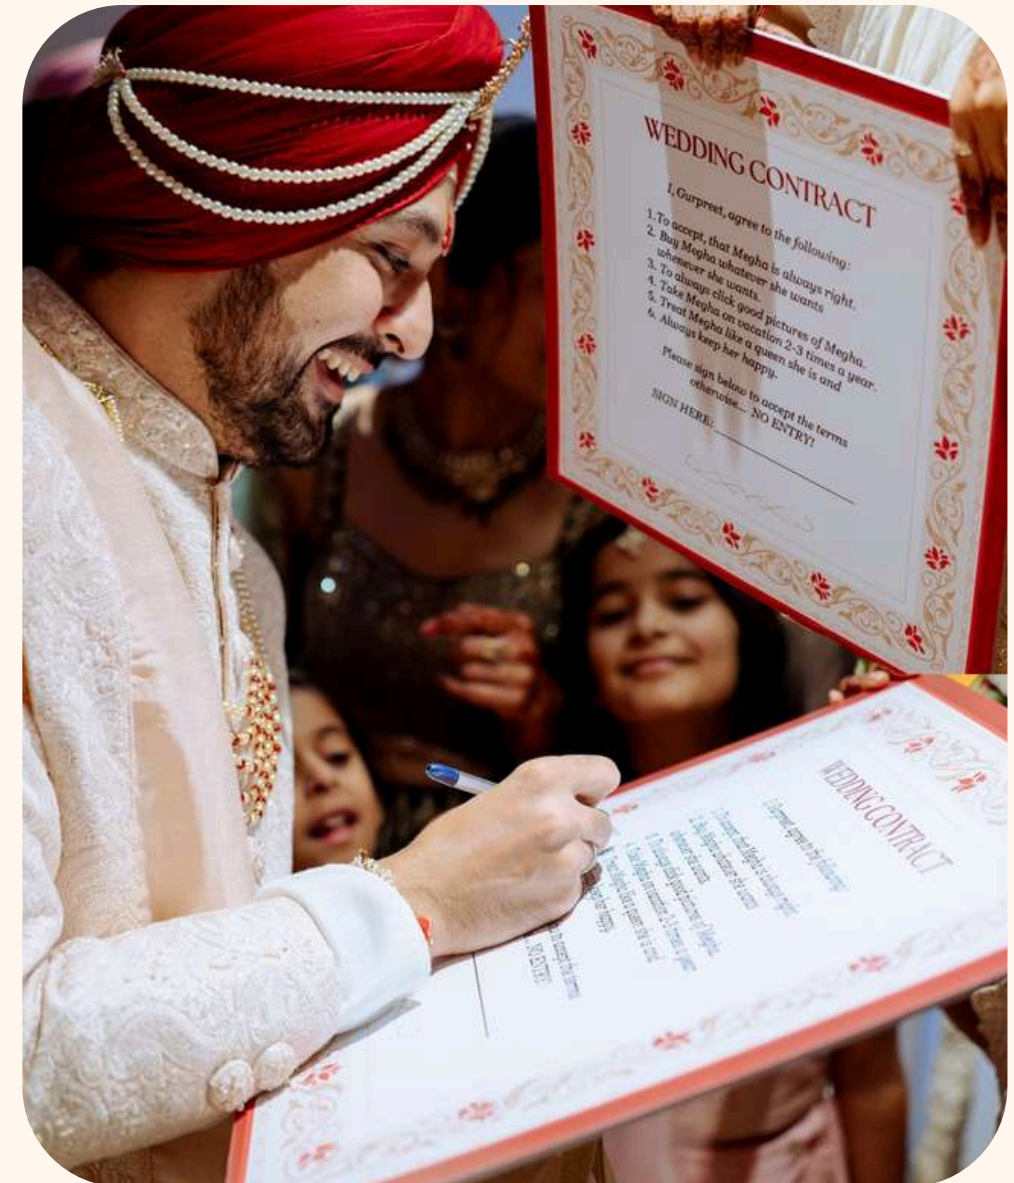 WEDDING CONTRACT
I, Gurpreet, agree to the following:
1. To accept, that Megha is always right.
2. Buy Megha whatever she wants
whenever she wants.
3. To always click good pictures of Megha.
4. Take Megha on vacation 2-3 times a year.
5. Treat Megha like a queen she is and
6. Always keep her happy.
Please sign below to accept the terms
otherwise... NO ENTRY!
SIGN HERE:
WEDDING CONTRACT
I, Gurpreet, agree to the following:
1. To accept, that Megha is always right.
2. Buy Megha whatever she wants
whenever she wants.
3. To always click good pictures of Megha.
4. Take Megha on vacation 2-3 times a year.
5. Treat Megha like a queen she is and
keep her happy.
to accept the terms
NO ENTRY!